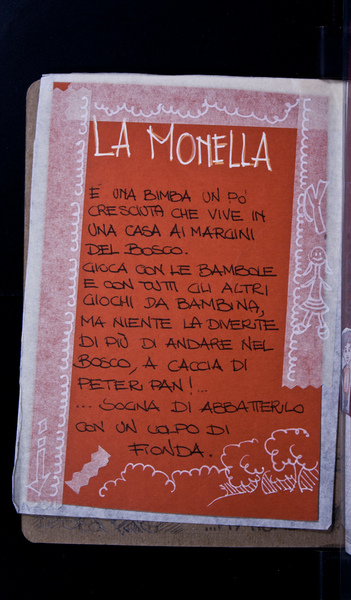 LA MONELLA
È UNA BIMBA UN PO'
CRESCIUTA CHE VIVE IN
UNA CASA AI MARGINI
DEL BOSCO.
GIOCA CON LE BAMBOLE
E CON TUTTI GLI ALTRI
GIOCHI DA BAMBINA,
MA NIENTE LA DIVERTE
DI PIÙ DI ANDARE NEL
BOSCO, A CACCIA DI
PETER PAN!...
... SOGNA DI ABBATTERLO
CON UN COLPO DI
FIONDA.